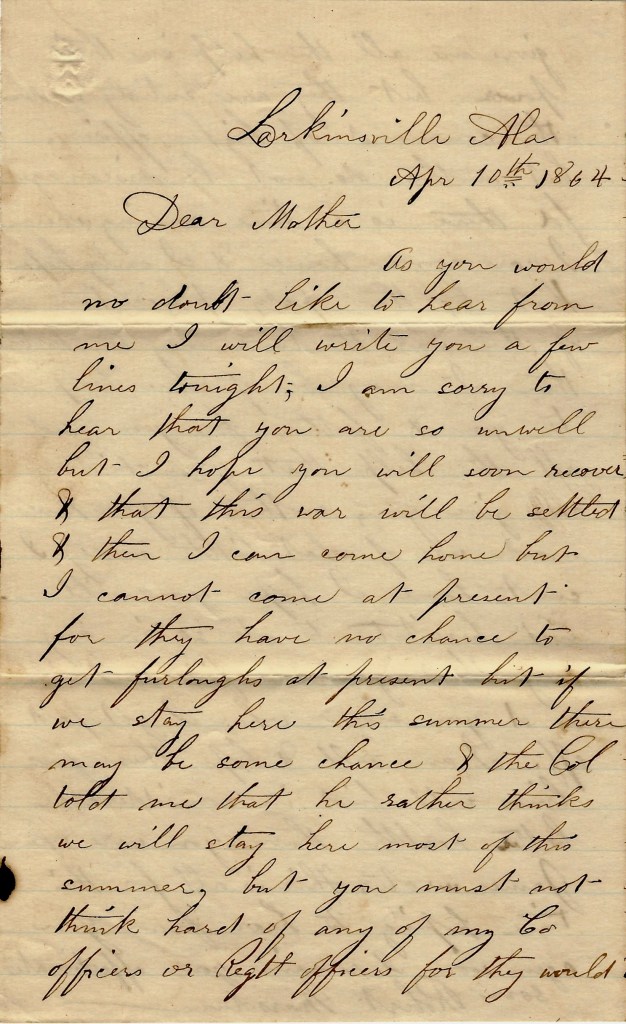 Larkinsville Ala
Apr 10th 1864
Dear Mother
As you would
no doubt like to hear from
me I will write you a few
lines tonight; I am sorry to
hear that you are so unwell
but I hope you will soon recover
& that this war will be settled
& then I can come home but
I cannot come at present
for they have no chance to
get furloughs at present but if
we stay here this summer there
may be some chance & the Col
told me that he rather thinks
we will stay here most of this
summer, but you must not
think hard of any of my Co
officers or Regtl officers for they would